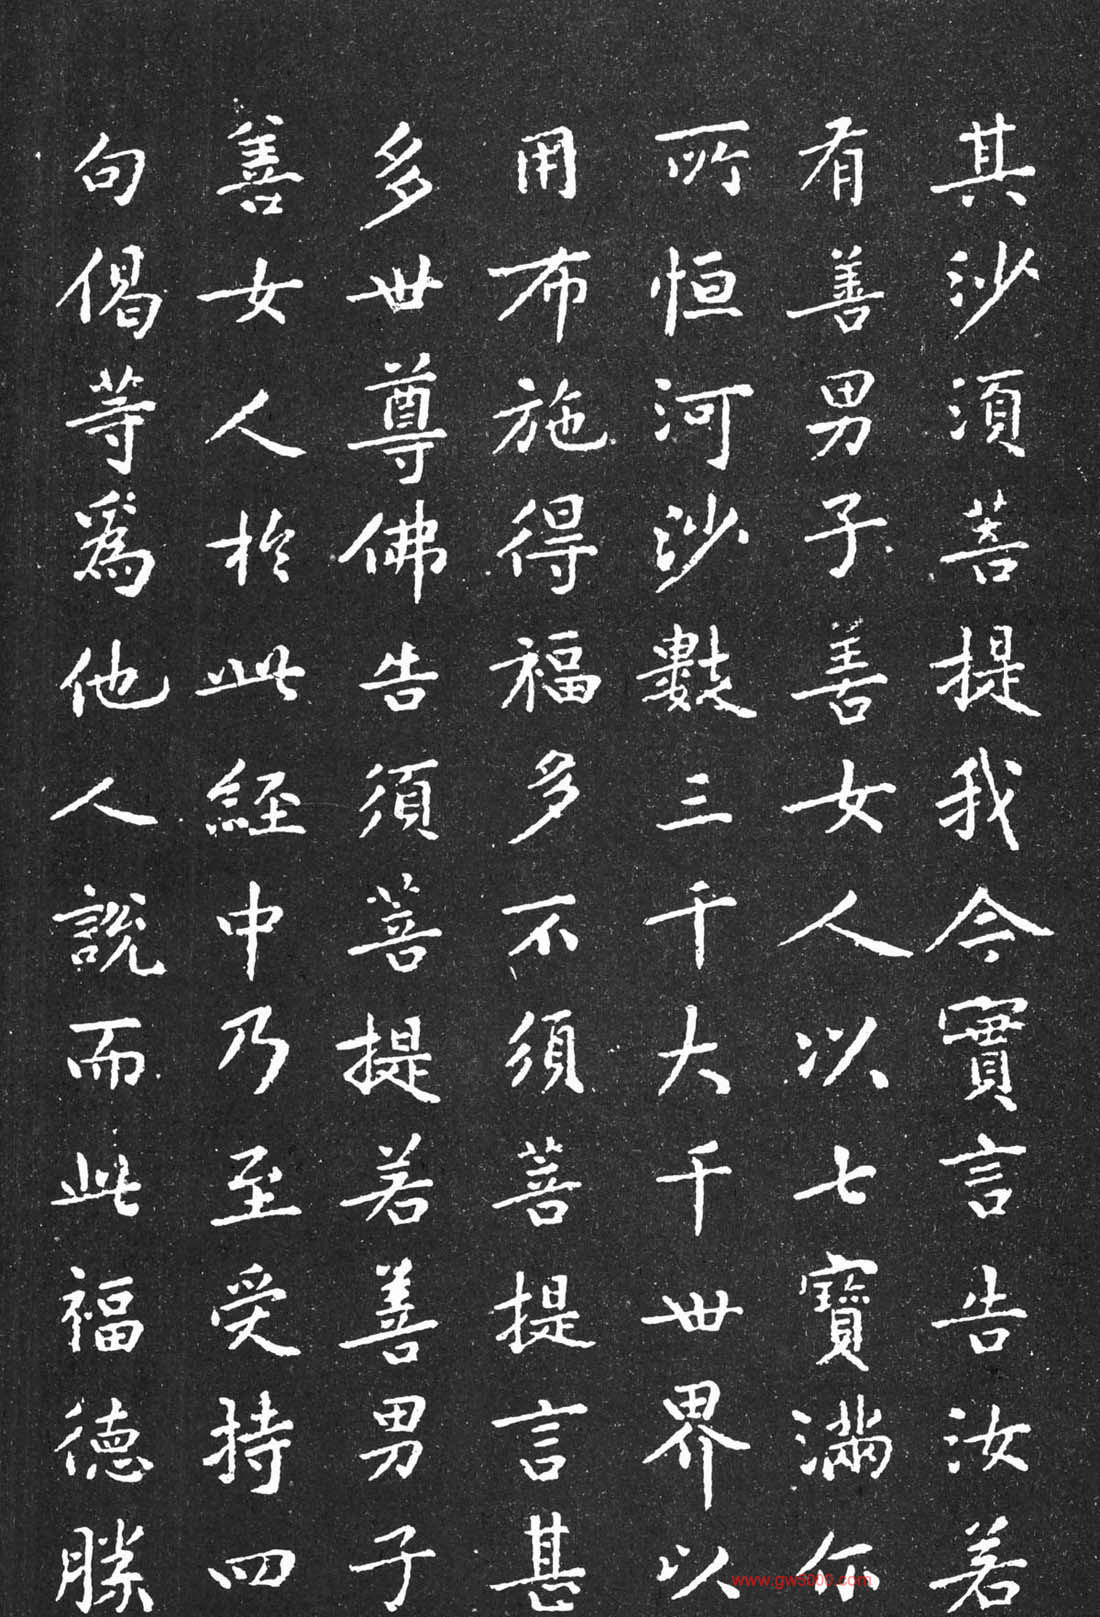 其沙須菩提我今實言告汝若
有善男子善女人以七寶滿尒
所恒河沙數三千大千世界以
用布施得福多不須菩提言甚
多世尊佛告須菩提若善男子
善女人於此經中乃至受持四
句偈等爲他人說而此福德勝
www.gw5000.com